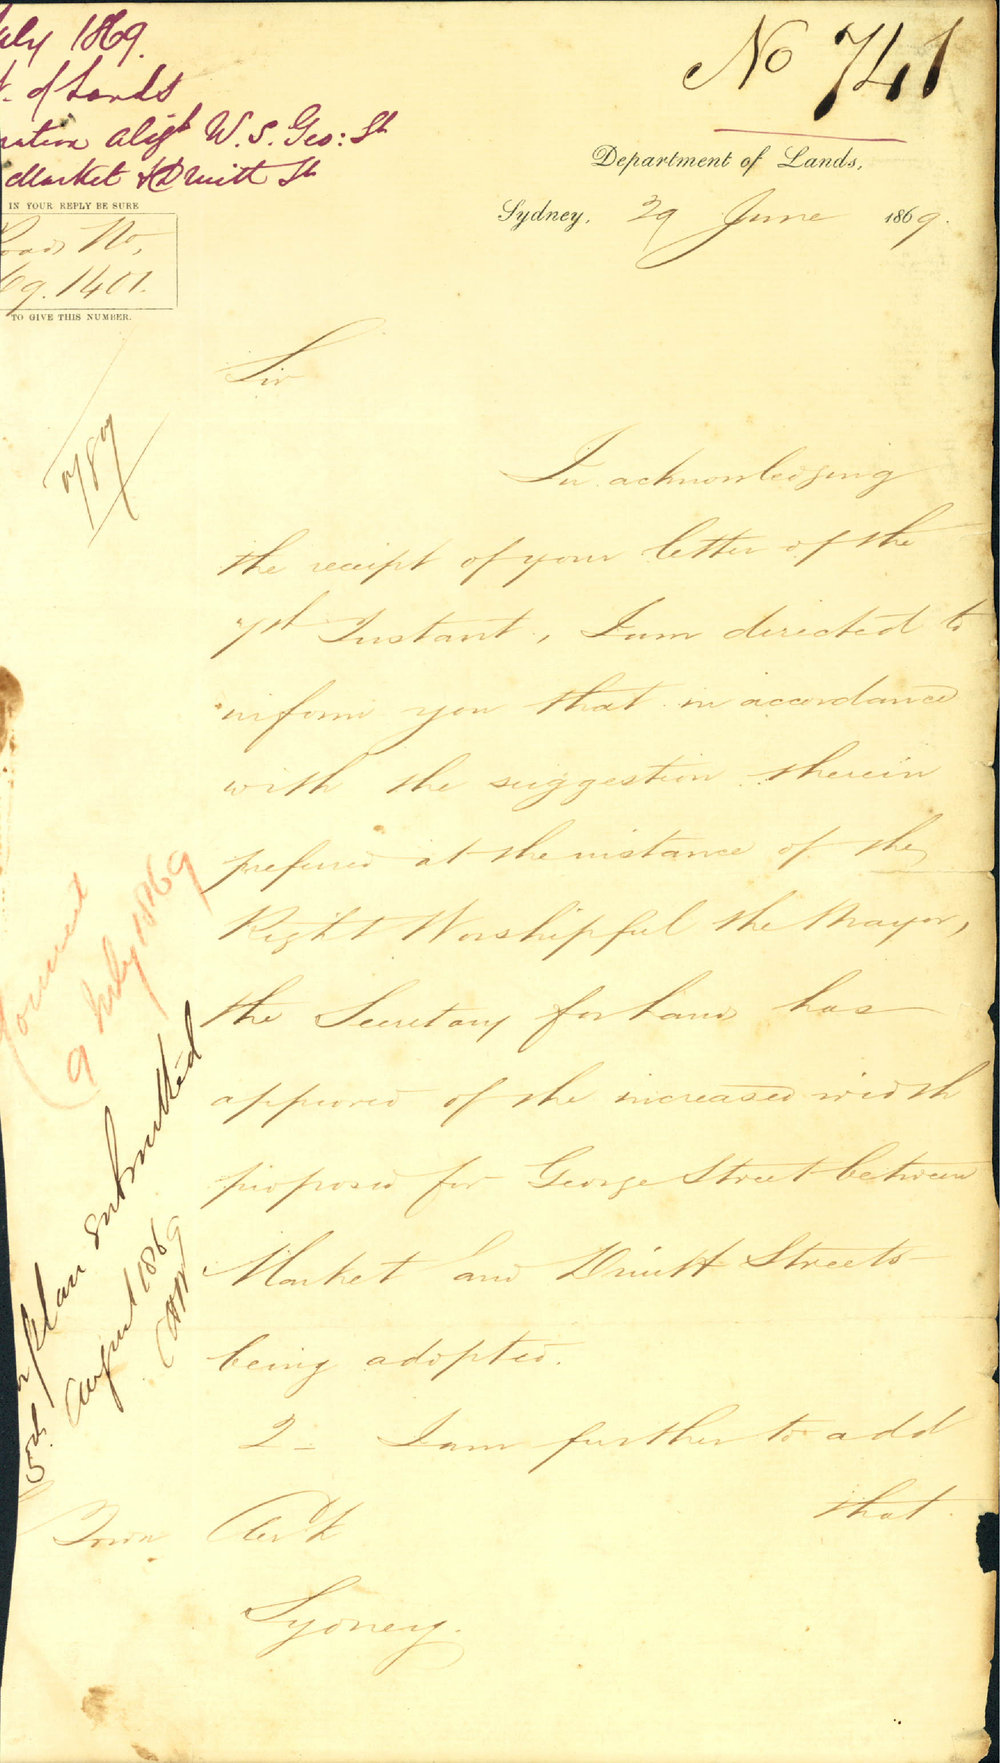 July 1869.
of Lands
alig^t W. S. Geo: St
Market & Druitt St
No 741
Department of Lands,
Sydney, 29 June 1869.
IN YOUR REPLY BE SURE
Roads No,
69.1401.
TO GIVE THIS NUMBER.
Sir
In acknowledging
the receipt of your letter of the
7th Instant, I am directed to
inform you that in accordance
with the suggestion therein
preferred at the instance of the
Right Worshipful the Mayor,
the Secretary for Lands has
approved of the increased width
proposed for George Street between
Market and Druitt Streets
being adopted.
2 - I am further to add
that
Town Clerk
Sydney.
9 July 1869
plan submitted
5th August 1869